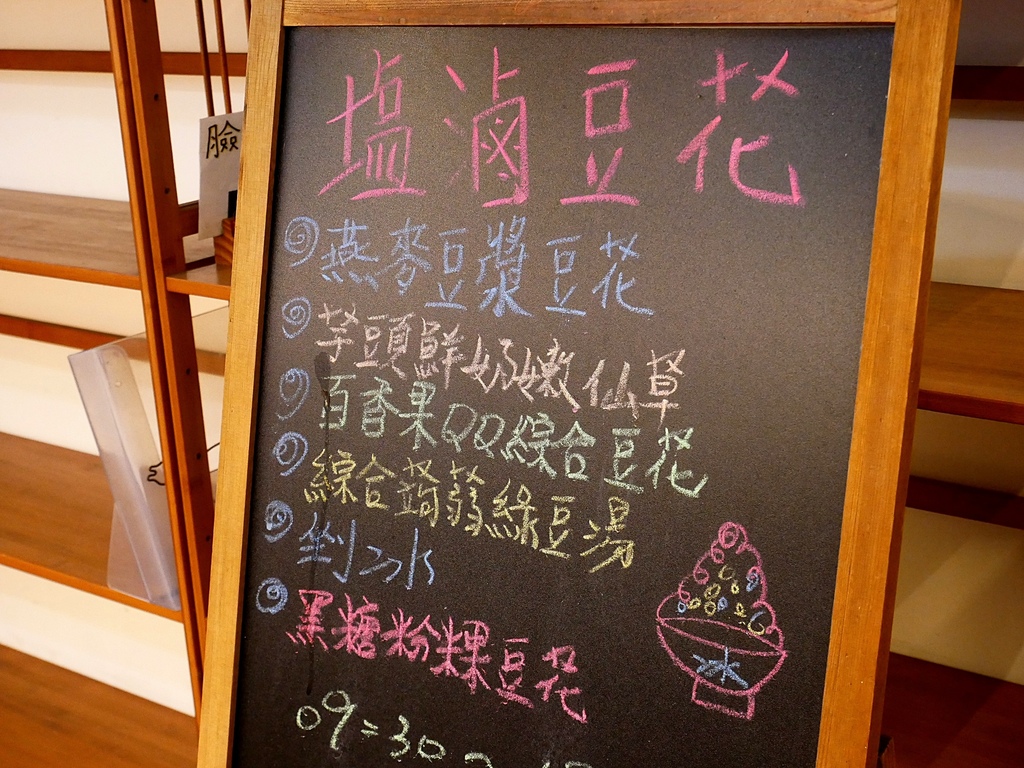 塩滷豆花
臉
燕麥豆漿豆花
芋頭鮮奶嫩仙草
百香果QQ綜合豆花
綜合蒟蒻綠豆湯
剉冰
黑糖粉粿豆花
冰
09:30~